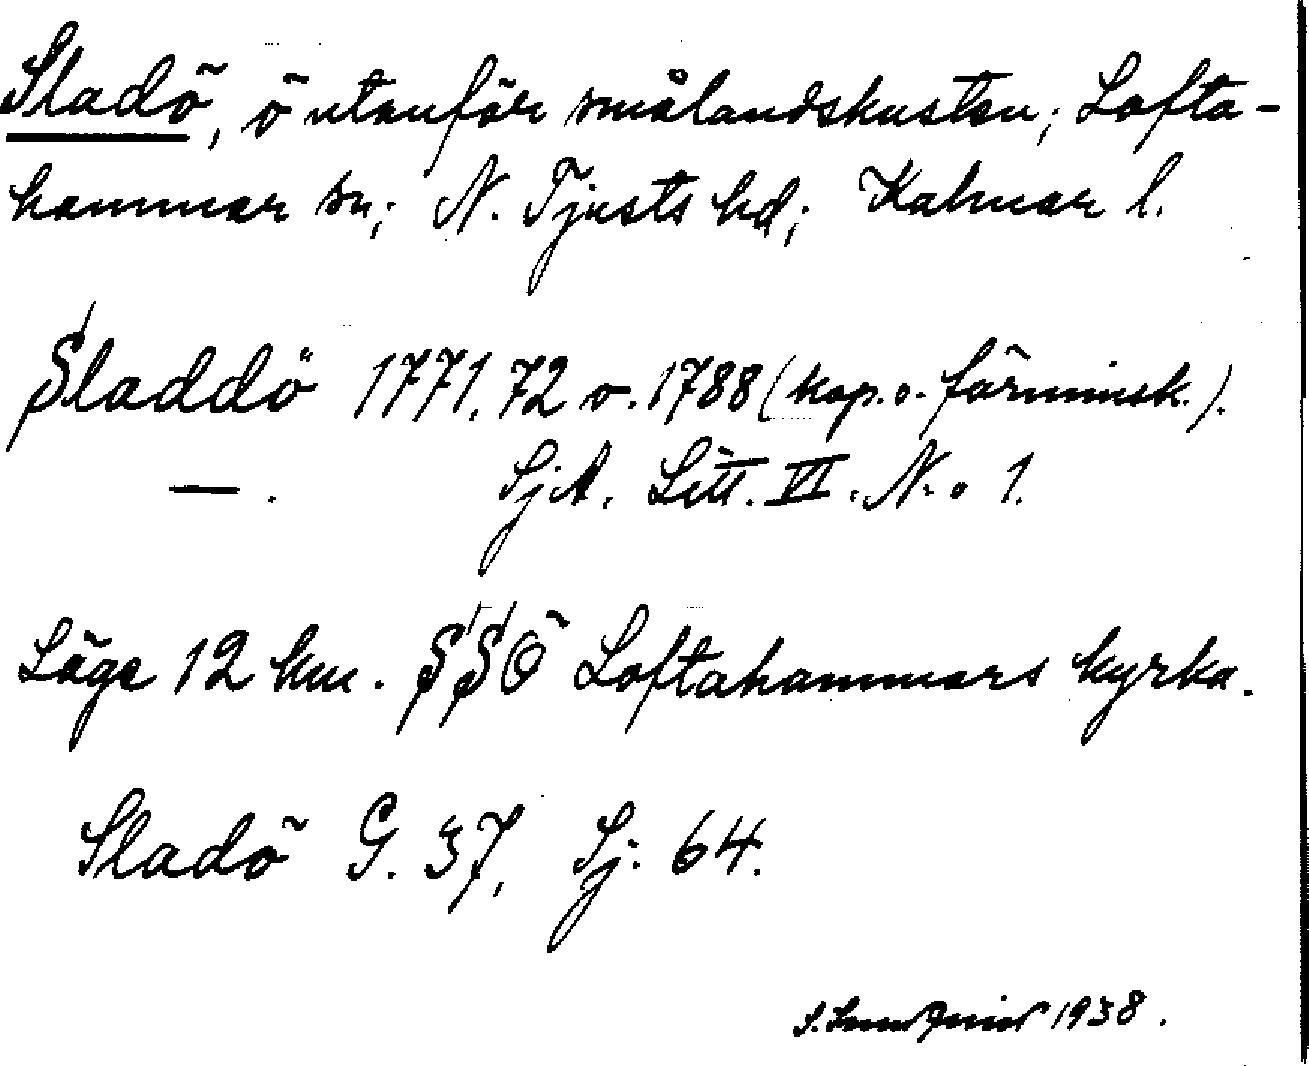 Sladö, ö utanför smålandskusten; Lofta-
hammar sn; N. Tjusts hd; Kalmar l.
Sladdö 1771, 72 o. 1788 (kop. o. förminsk.).
— . SjA. Litt. VI. N.o 1.
Läge 12 km. SSÖ Loftahammars kyrka.
Sladö G. 37, Sj. 64.
1938.